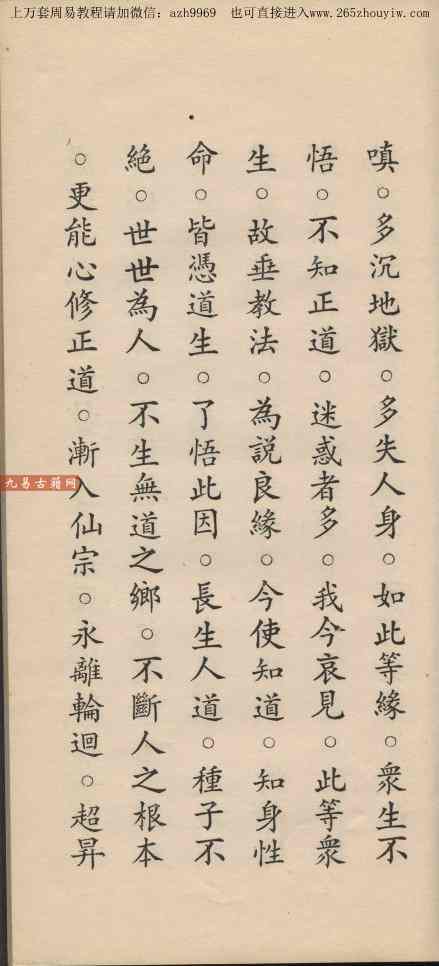 上万套周易教程请加微信：azh9969 也可直接进入www.265zhouyiw.com
嗔。多沉地獄。多失人身。如此等緣。衆生不
悟。不知正道。迷惑者多。我今哀見。此等衆
生。故垂教法。為説良緣。今使知道。知身性
命。皆憑道生。了悟此因。長生人道。種子不
絶。世世為人。不生無道之鄉。不斷人之根本
。更能心修正道。漸入仙宗。永離輪迴。超昇
九易古籍网